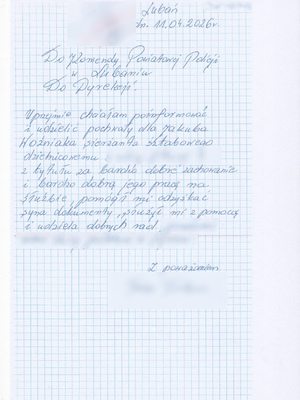 Lubań
dn. 11.04.2026r
Do Komendy Powiatowej Policji
w Lubaniu
Do Dyrekcji.
Uprzejmie chciałam poinformować
i udzielić pochwały dla Jakuba
Woźniaka sierżanta sztabowego
dzielnicowemu
z tytułu za bardzo dobre zachowanie
i bardzo dobrą jego pracę na
służbie, pomógł mi odzyskać
syna dokumenty, służył mi z pomocą
i udziela dobrych rad.
Z poważaniem